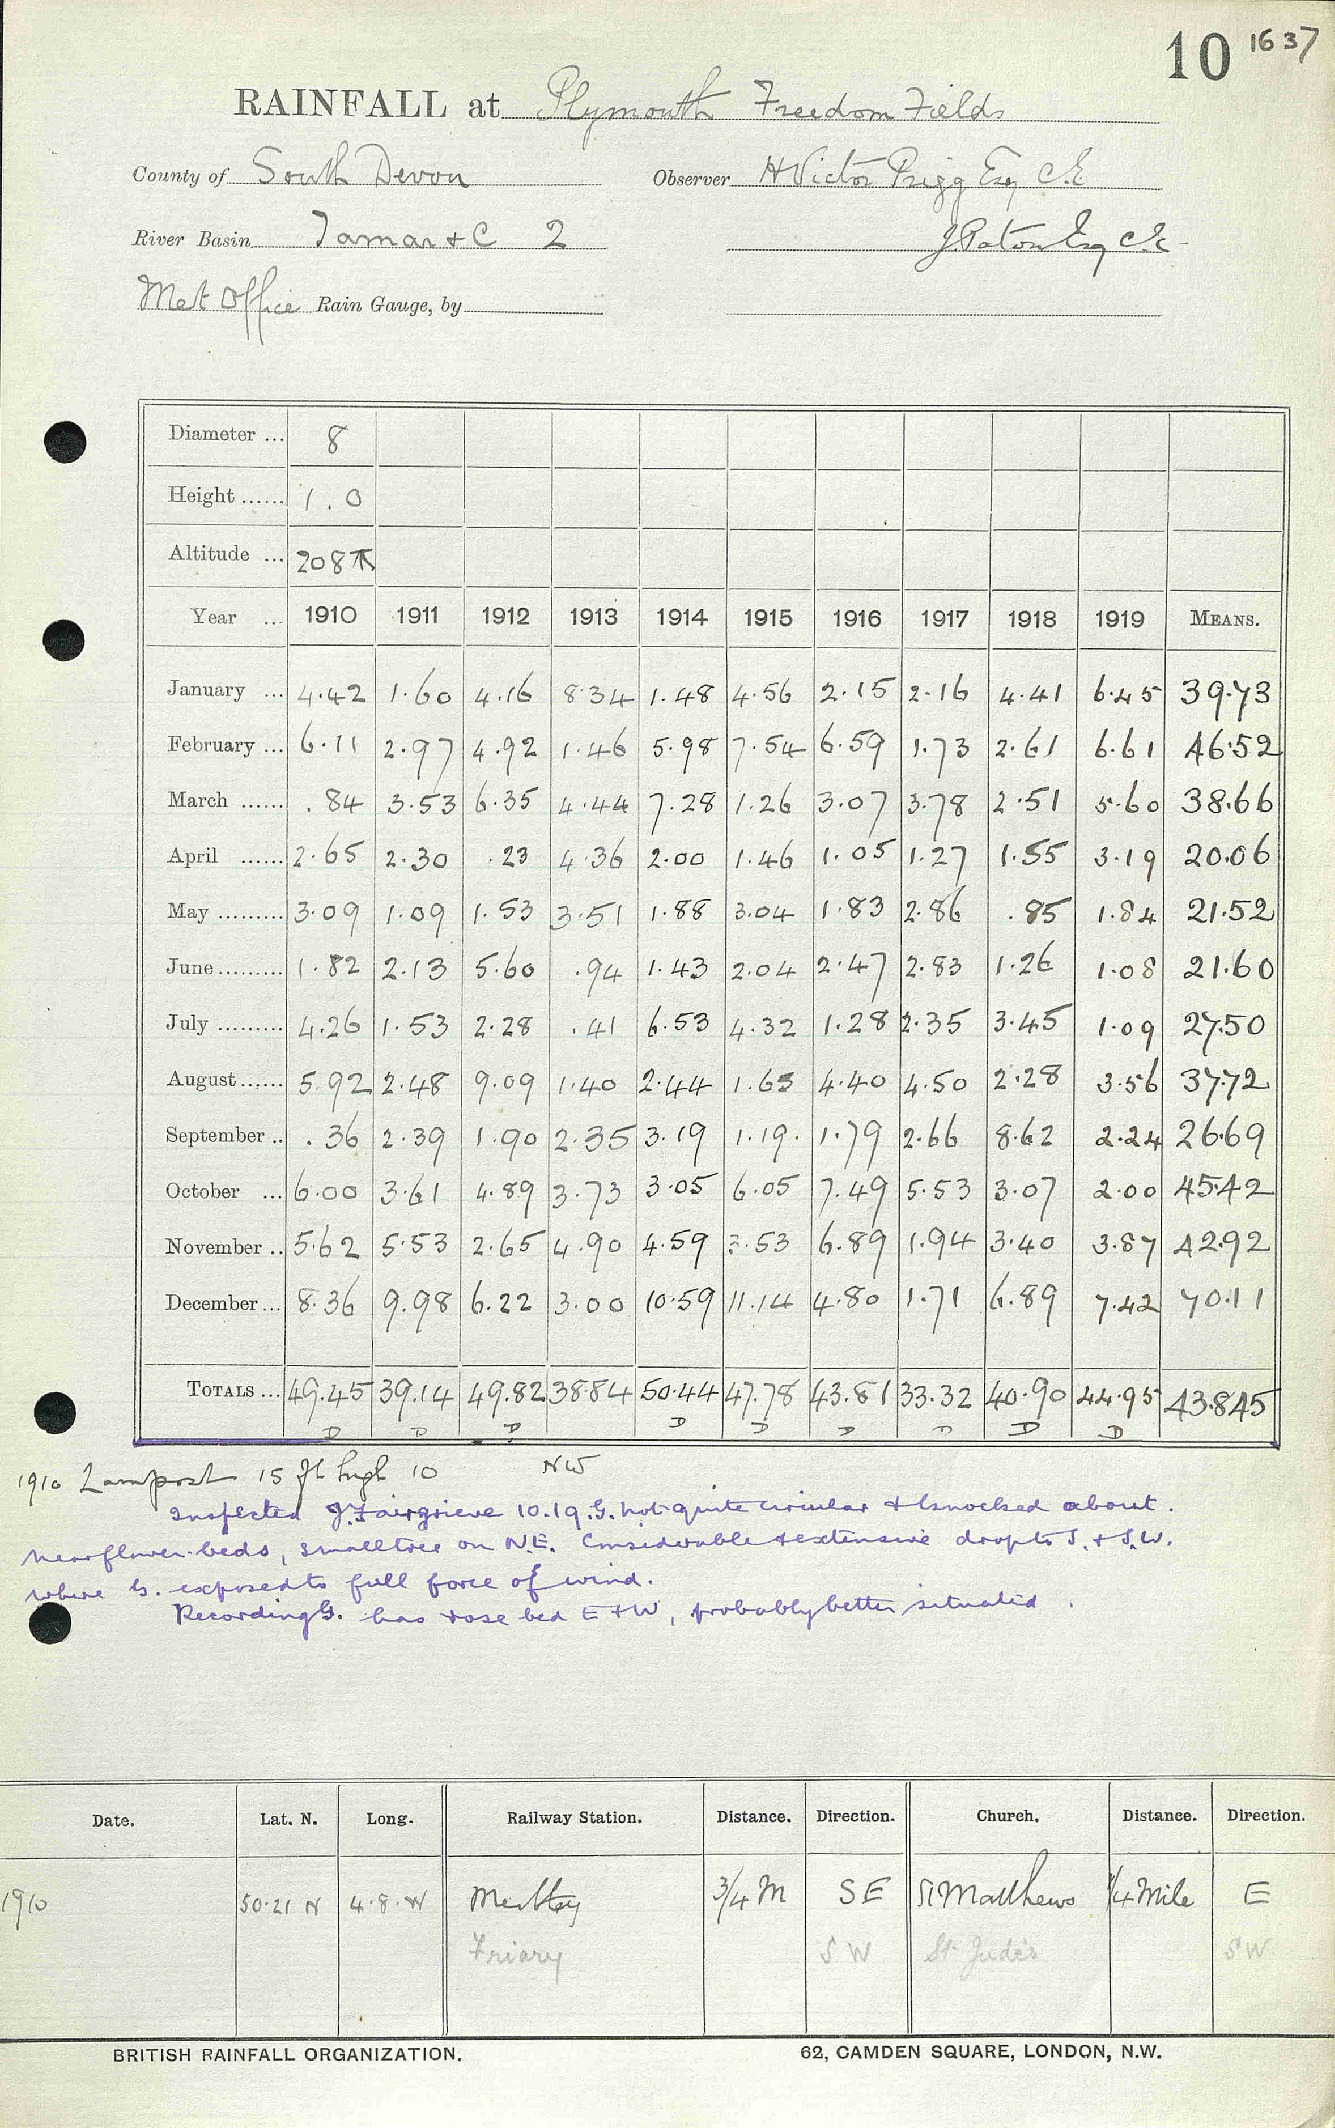 10 1637
RAINFALL at Plymouth Freedom Fields
County of South Devon Observer H Victor Prigg Esq C.E
River Basin Tamar & C 2 J. Paton Esq C.E
Met Office Rain Gauge, by
Diameter ... 8
Height ...... 1.0
Altitude ... 208
Year ... 1910 1911 1912 1913 1914 1915 1916 1917 1918 1919 MEANS.
January ... 4.42 1.60 4.16 8.34 1.48 4.56 2.15 2.16 4.41 6.45 39.73
February ... 6.11 2.97 4.92 1.46 5.98 7.54 6.59 1.73 2.61 6.61 46.52
March ...... .84 3.53 6.35 4.44 7.28 1.26 3.07 3.78 2.51 5.60 38.66
April ...... 2.65 2.30 .23 4.36 2.00 1.46 1.05 1.27 1.55 3.19 20.06
May ......... 3.09 1.09 1.53 3.51 1.88 3.04 1.83 2.86 .85 1.84 21.52
June ......... 1.82 2.13 5.60 .94 1.43 2.04 2.47 2.83 1.26 1.08 21.60
July ......... 4.26 1.53 2.28 .41 6.53 4.32 1.28 2.35 3.45 1.09 27.50
August ...... 5.92 2.48 9.09 1.40 2.44 1.65 4.40 4.50 2.28 3.56 37.72
September .. .36 2.39 1.90 2.35 3.19 1.19. 1.79 2.66 8.62 2.24 26.69
October ... 6.00 3.61 4.89 3.73 3.05 6.05 7.49 5.53 3.07 2.00 45.42
November .. 5.62 5.53 2.65 4.90 4.59 3.53 6.89 1.94 3.40 3.87 42.92
December ... 8.36 9.98 6.22 3.00 10.59 11.14 4.80 1.71 6.89 7.42 70.11
TOTALS ... 49.45 39.14 49.82 38.84 50.44 47.78 43.81 33.32 40.90 44.95 43.845
D D D D D D D D D
1910 Lampost 15 ft high 10 NW
Inspected J. Fairgrieve 10.19. G. not quite circular & knocked about.
Near flower-beds, small tree on N.E. Considerable & extensive drop to S. & S.W.
where G. exposed to full force of wind.
Recording G. has rose bed E & W, probably better situated.
Date. Lat. N. Long. Railway Station. Distance. Direction. Church. Distance. Direction.
1910 50.21 N 4.8.W 3/4 M SE St Matthews 1/4 Mile E
Friary SW St Jude's SW
BRITISH RAINFALL ORGANIZATION. 62, CAMDEN SQUARE, LONDON, N.W.